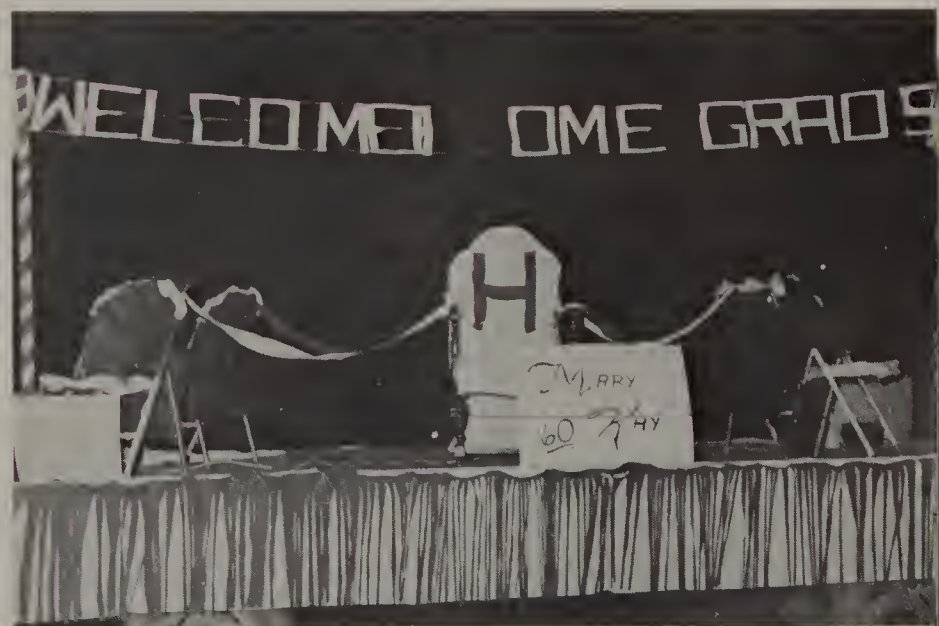 WELCOME HOME GRADS
H
MARRY
60 KAY